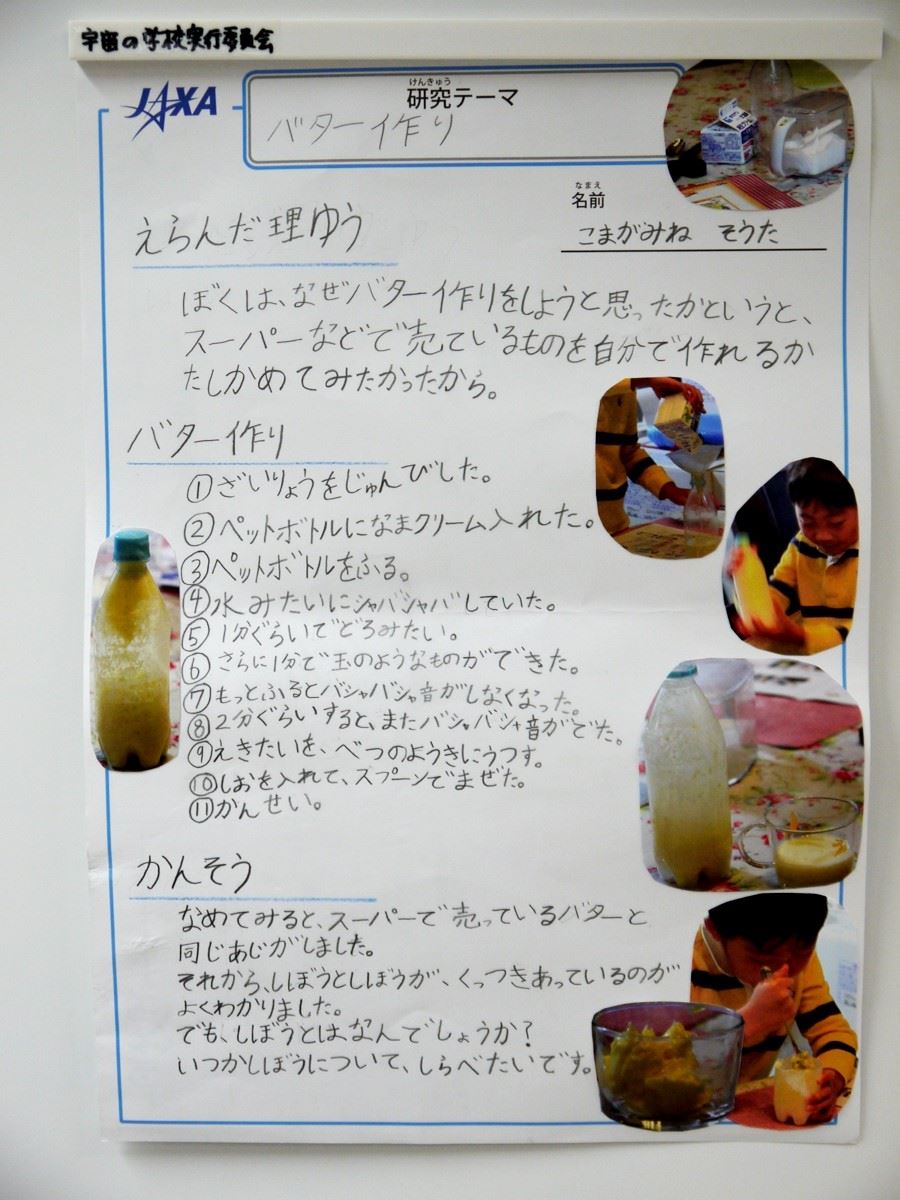 宇宙の学校実行委員会
JAXA
けんきゅう
研究テーマ
バター作り
なまえ
名前
こまがみね そうた
えらんだ理ゆう
ぼくは、なぜバター作りをしようと思ったかというと、
スーパーなどで売ているものを自分で作れるか
たしかめてみたかったから。
バター作り
①ざいりょうをじゅんびした。
②ペットボトルになまクリーム入れた。
③ペットボトルをふる。
④水みたいにシャバシャバしていた。
⑤1分ぐらいでどろみたい。
⑥さらに1分で玉のようなものができた。
⑦もっとふるとバシャバシャ音がしなくなった。
⑧2分ぐらいすると、またバシャバシャ音がでた。
⑨えきたいを、べつのようきにうつす。
⑩しおを入れて、スプーンでまぜた。
⑪かんせい。
かんそう
なめてみると、スーパーで売っているバターと
同じあじがしました。
それから、しぼうとしぼうが、くっつきあっているのが
よくわかりました。
でも、しぼうとはなんでしょうか?
いつかしぼうについて、しらべたいです。